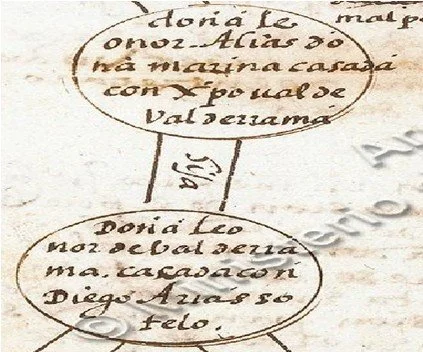 doña le
onor Alias do
ña marina casada
con Xpoval de
Valderrama
mal p
hija
Doña Leo
nor de Valderra
ma. casada con
Diego Arias so
telo.
© Ministerio